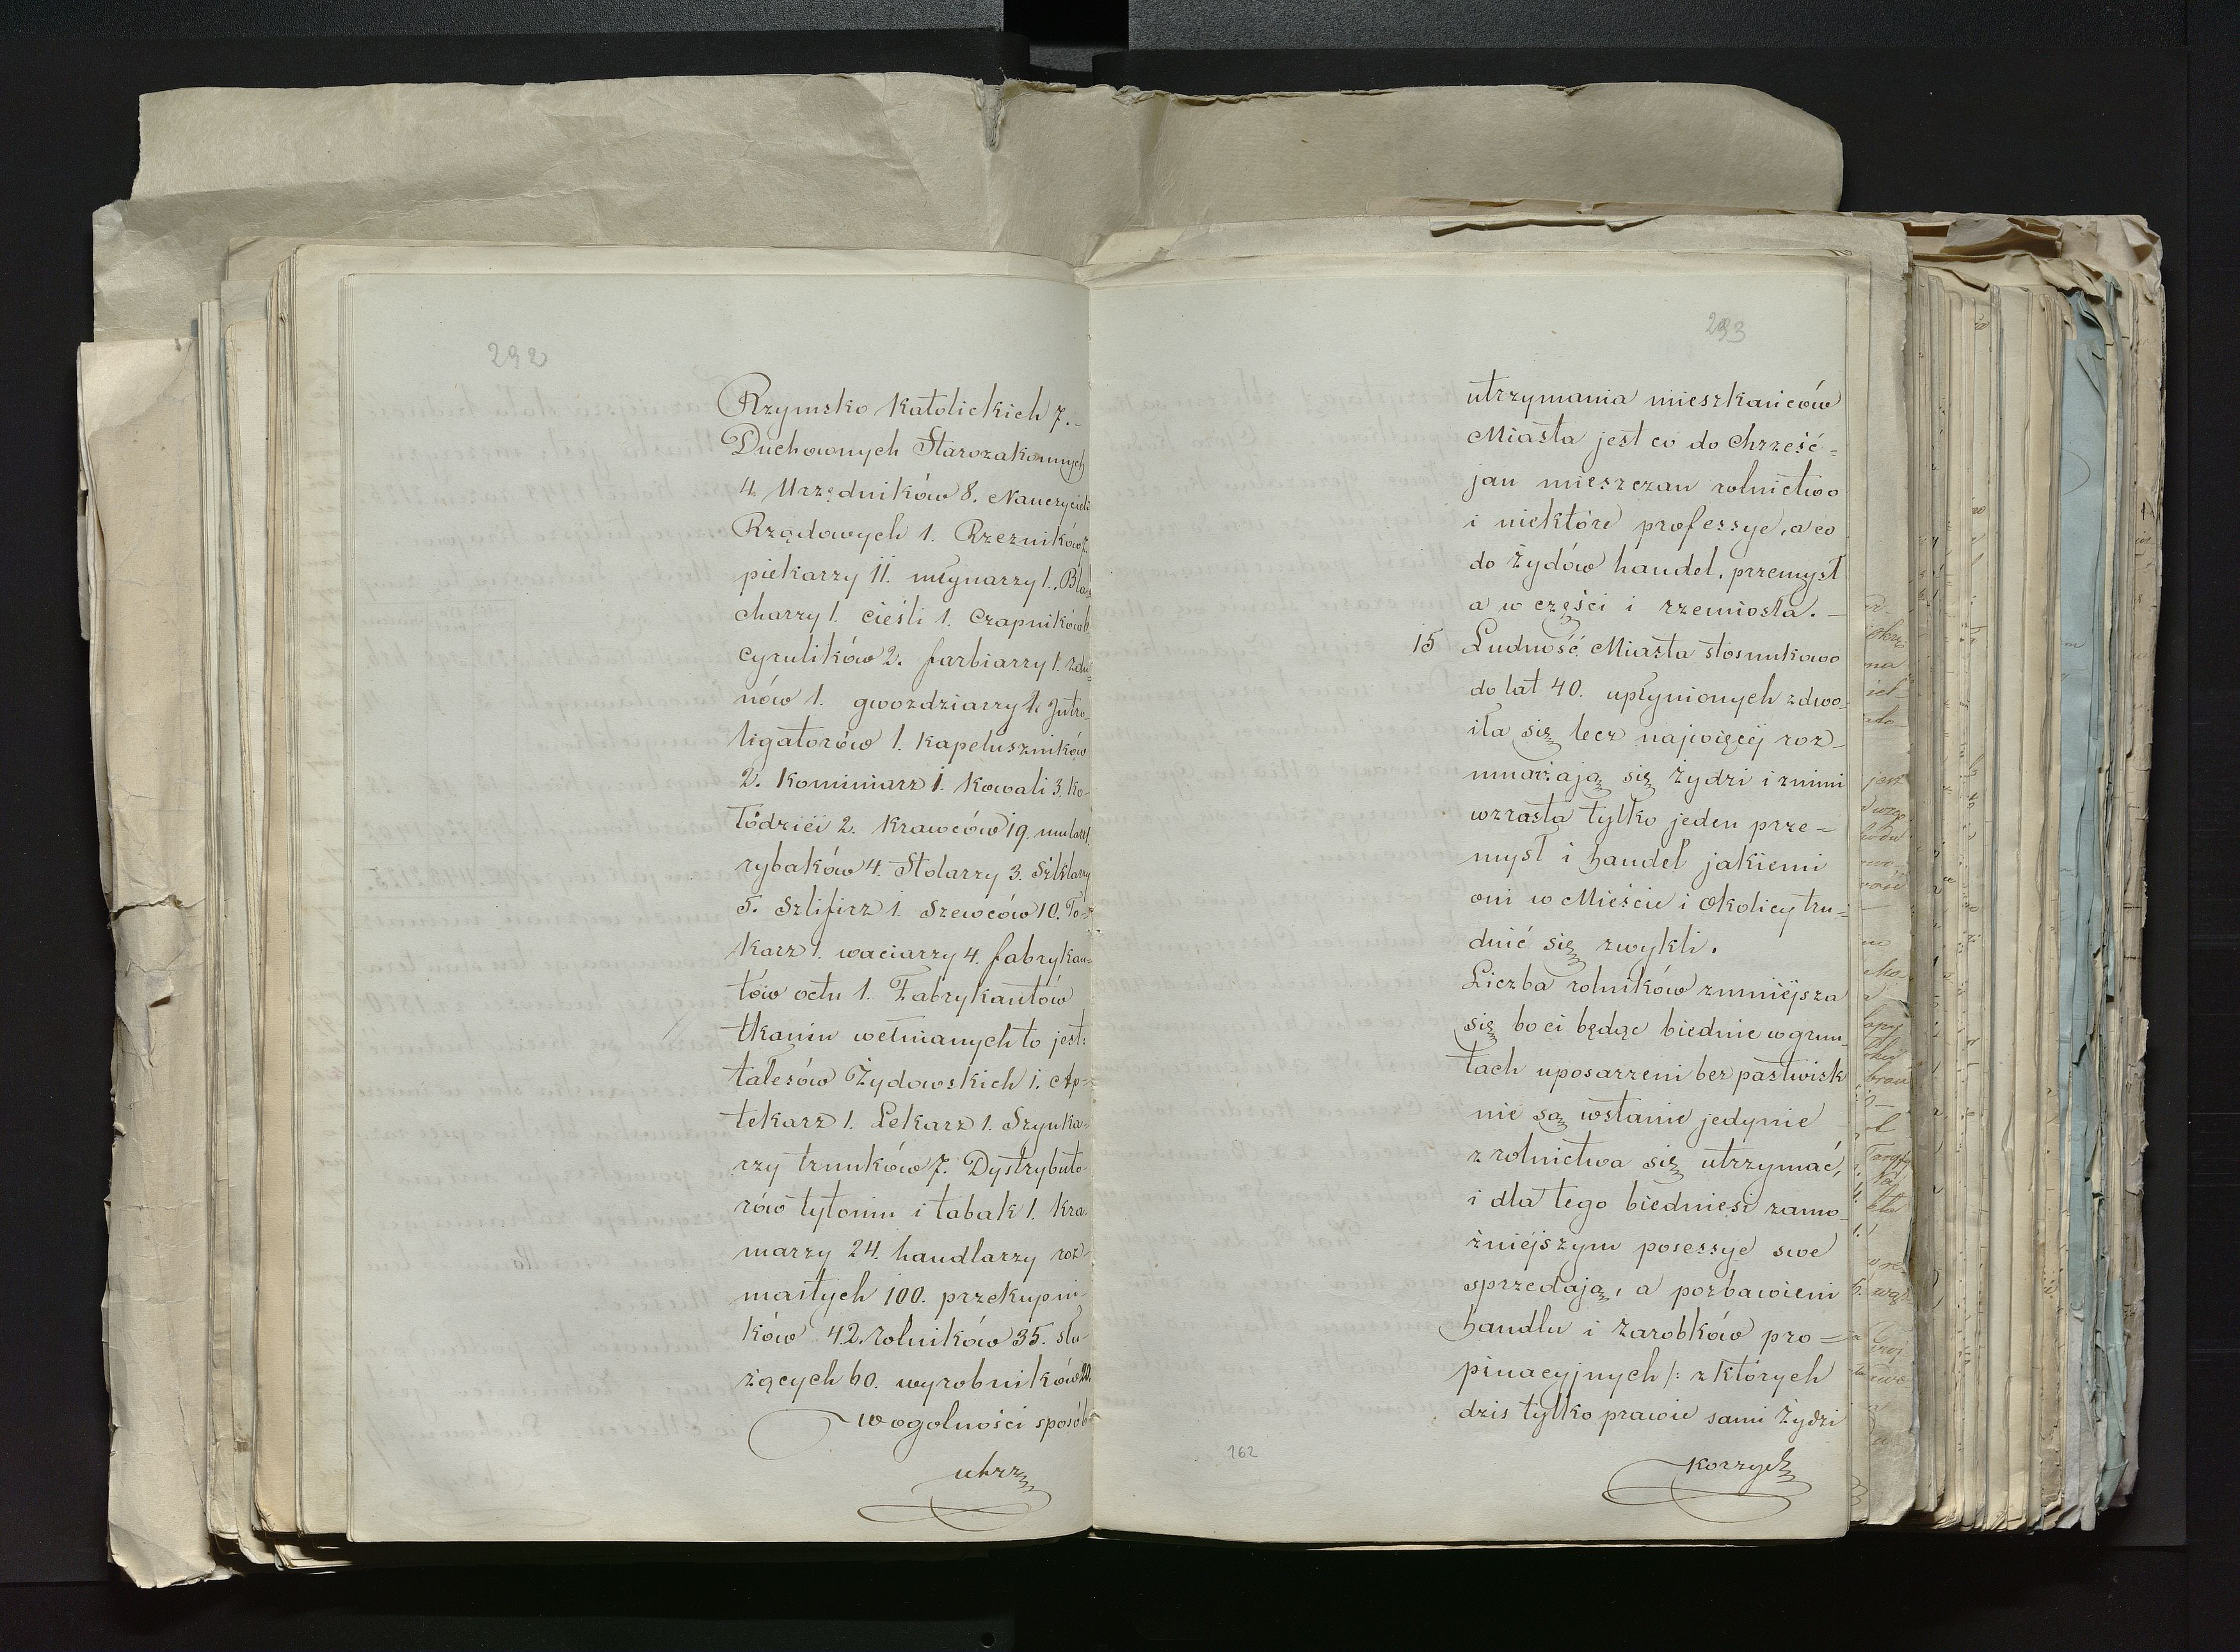 292
Rzymsko Katolickich 7.-
Duchownych Starozakonnych
4. Urzędników 8. Nauczycieli
Rządowych 1. Rzezników 7.
piekarzy 11. młynarzy 1. Bla-
charzy 1. cieśli 1. Czapników 6.
cyrulików 2. farbiarzy 1. zdu-
nów 1. gwozdziarzy 2. Jntro-
ligatorów 1. Kapeluszników
2. Kominiarz 1. Kowali 3. Ko-
łodzieii 2. Krawców 19. mularz 1.
rybaków 4. Stolarzy 3. Szklarzy
5. Szlifirz 1. Szewców 10. To-
karz 1. waciarzy 4. fabrykan-
tów octu 1. Fabrykantów
tkanin wełnianych to jest:
talesów Żydowskich 1. Ap-
tekarz 1. Lekarz 1. Szynka-
rzy trunków 7. Dystrybuto-
rów tytoniu i tabak 1. Kra-
marzy 24. handlarzy roz-
maitych 100. przekupni-
ków 42. rolników 35. słu-
żących 60. wyrobników 20.
w ogolności sposób
utrz
293
utrzymania mieszkańców
Miasta jest co do Chrześć-
jan mieszczan rolnictwo
i niektóre professye, a co
do Żydów handel, przemysł
a w części i rzemiosła.-
15 Ludność Miasta stosunkowo
do lat 40. upłynionych zdwo-
iła się lecz najwięcéj roz-
mnażają się Żydzi i z nimi
wzrasta tylko jeden prze-
mysł i handel jakiemi
oni w Mieście i okolicy tru-
dnić się zwykli.
Liczba rolników zmniéjsza
się bo ci będąc biednie w grun-
tach uposarzeni bez pastwisk
nie są wstanie jedynie
z rolnictwa się utrzymać,
i dla tego biedniesi zamo-
żniejszym posessye swe
sprzedają, a pozbawieni
handlu i zarobków pro-
pinacyjnych /: z których
dzis tylko prawie sami Żydzi
korzyst
162